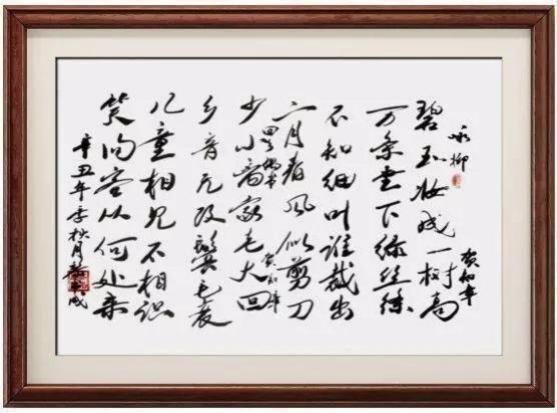 咏柳 贺知章
碧玉妆成一树高
万条垂下绿丝绦
不知细叶谁裁出
二月春风似剪刀
回乡偶书 贺知章
少小离家老大回
乡音无改鬓毛衰
儿童相见不相识
笑问客从何处来
辛丑年季秋月